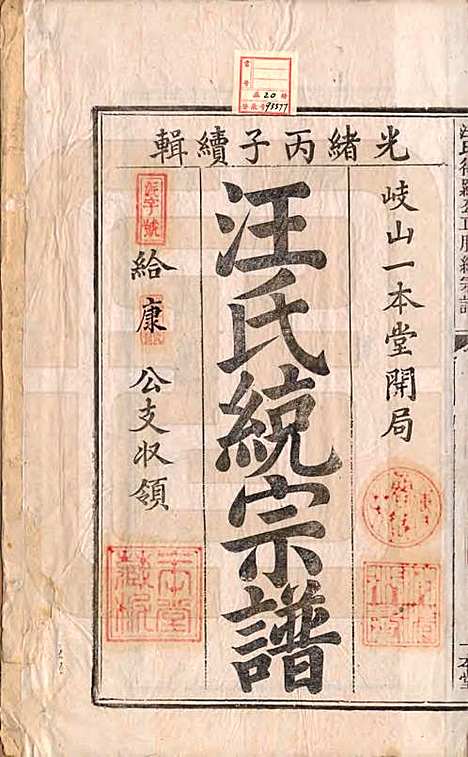 光緒丙子續輯
岐山一本堂開局
汪氏統宗譜
給康公支収領
字號
20
93577